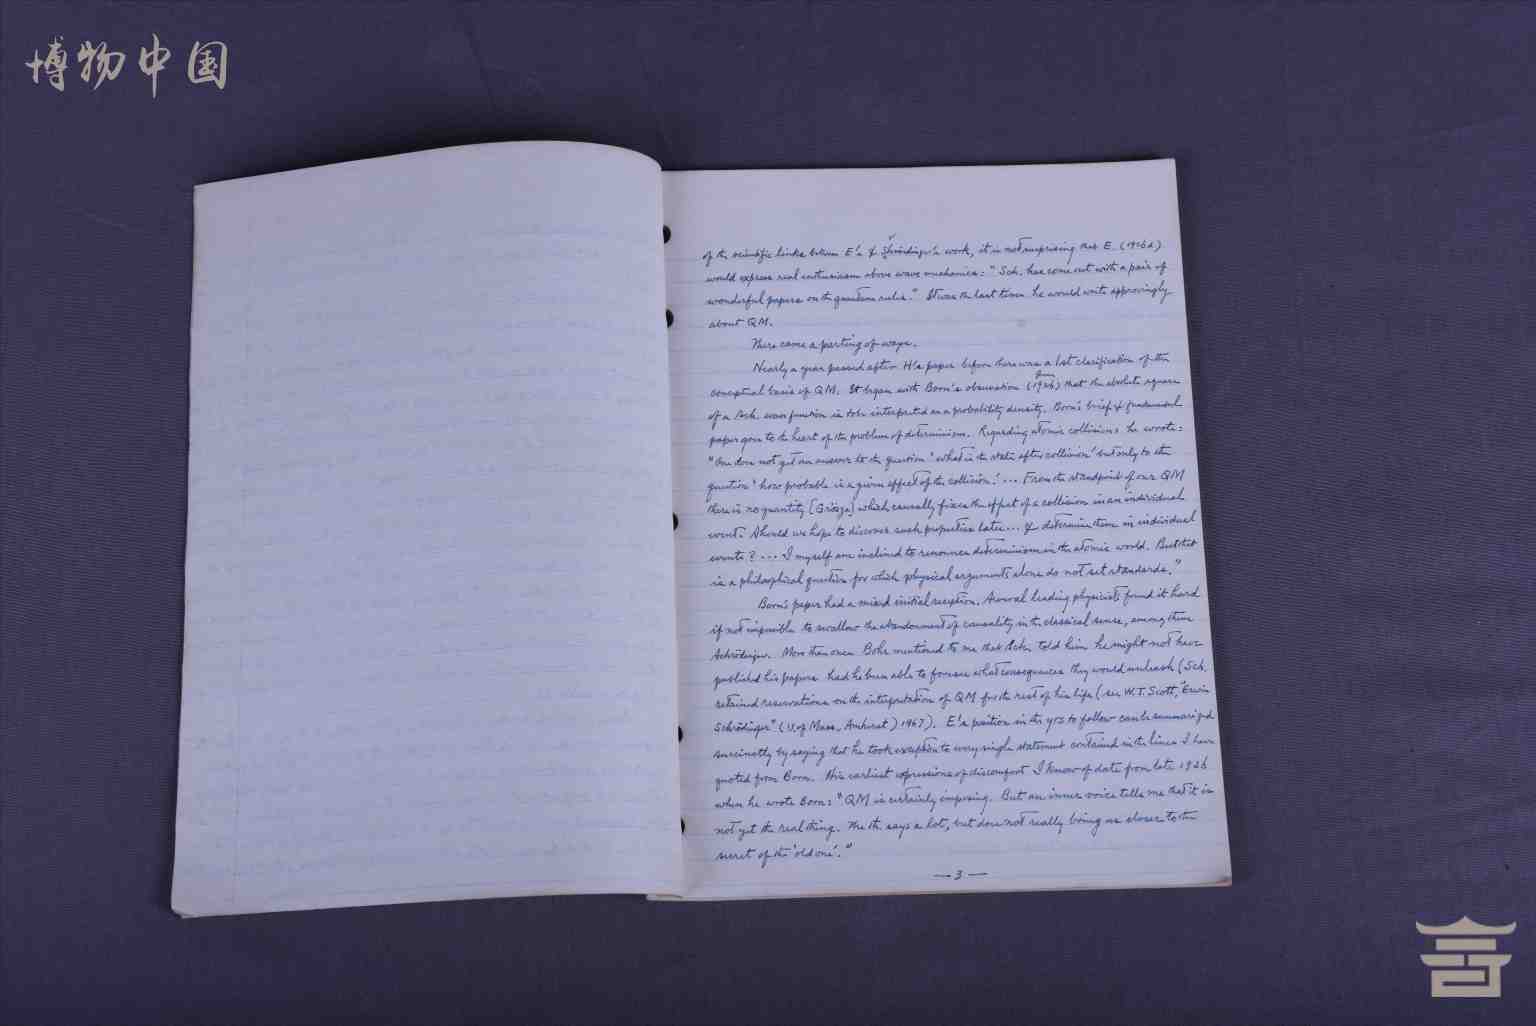 博物中国
of the scientific links between E's & Schrödinger's work, it is not surprising that E. (1926a)
would express real enthusiasm above wave mechanics: "Sch. has come out with a pair of
wonderful papers on the quantum rules." It was the last time he would write approvingly
about QM.
There came a parting of ways.
Nearly a year passed after H's paper before there was a 1st clarification of the
conceptual basis of QM. It began with Born's observation (1926) that the absolute square
of a Sch. wave function is to be interpreted as a probability density. Born's brief & fundamental
paper goes to the heart of the problem of determinism. Regarding atomic collisions he wrote:
"One does not get an answer to the question 'what is the state after collision' but only to the
question 'how probable is a given effect of the collision.' ... From the standpoint of our QM
there is no quantity [Grösze] which causally fixes the effect of a collision in an individual
event. Should we hope to discover such properties later ... & determine them in individual
events? ... I myself am inclined to renounce determinism in the atomic world. But that
is a philosophical question for which physical arguments alone do not set standards."
Born's paper had a mixed initial reception. Several leading physicists found it hard
if not impossible to swallow the abandonment of causality in the classical sense, among them
Schrödinger. More than once Bohr mentioned to me that Sch. told him he might not have
published his papers had he been able to foresee what consequences they would unleash (Sch.
retained reservations on the interpretation of QM for the rest of his life (see W.T. Scott, "Erwin
Schrödinger" (U. of Mass., Amherst) 1967). E's position in the yrs to follow can be summarized
succinctly by saying that he took exception to every single statement contained in the lines I have
quoted from Born. His earliest expressions of discomfort I know of date from late 1926
when he wrote Born: "QM is certainly imposing. But an inner voice tells me that it is
not yet the real thing. The th. says a lot, but does not really bring us closer to the
secret of the 'old one'."
— 3 —